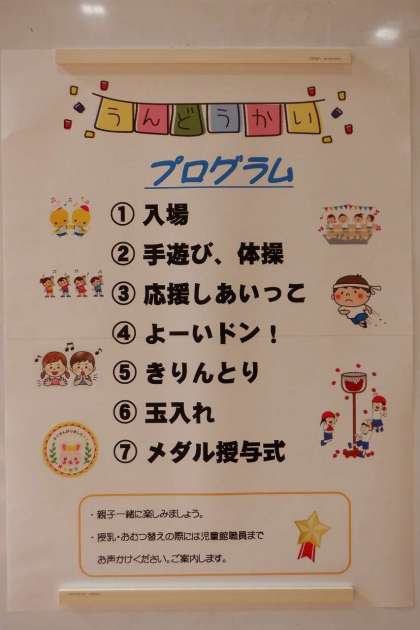 うんどうかい
プログラム
① 入場
② 手遊び、体操
③ 応援しあいっこ
④ よーいドン！
⑤ きりんとり
⑥ 玉入れ
⑦ メダル授与式
・親子一緒に楽しみましょう。
・授乳・おむつ替えの際には児童館職員まで
お声かけください。ご案内します。